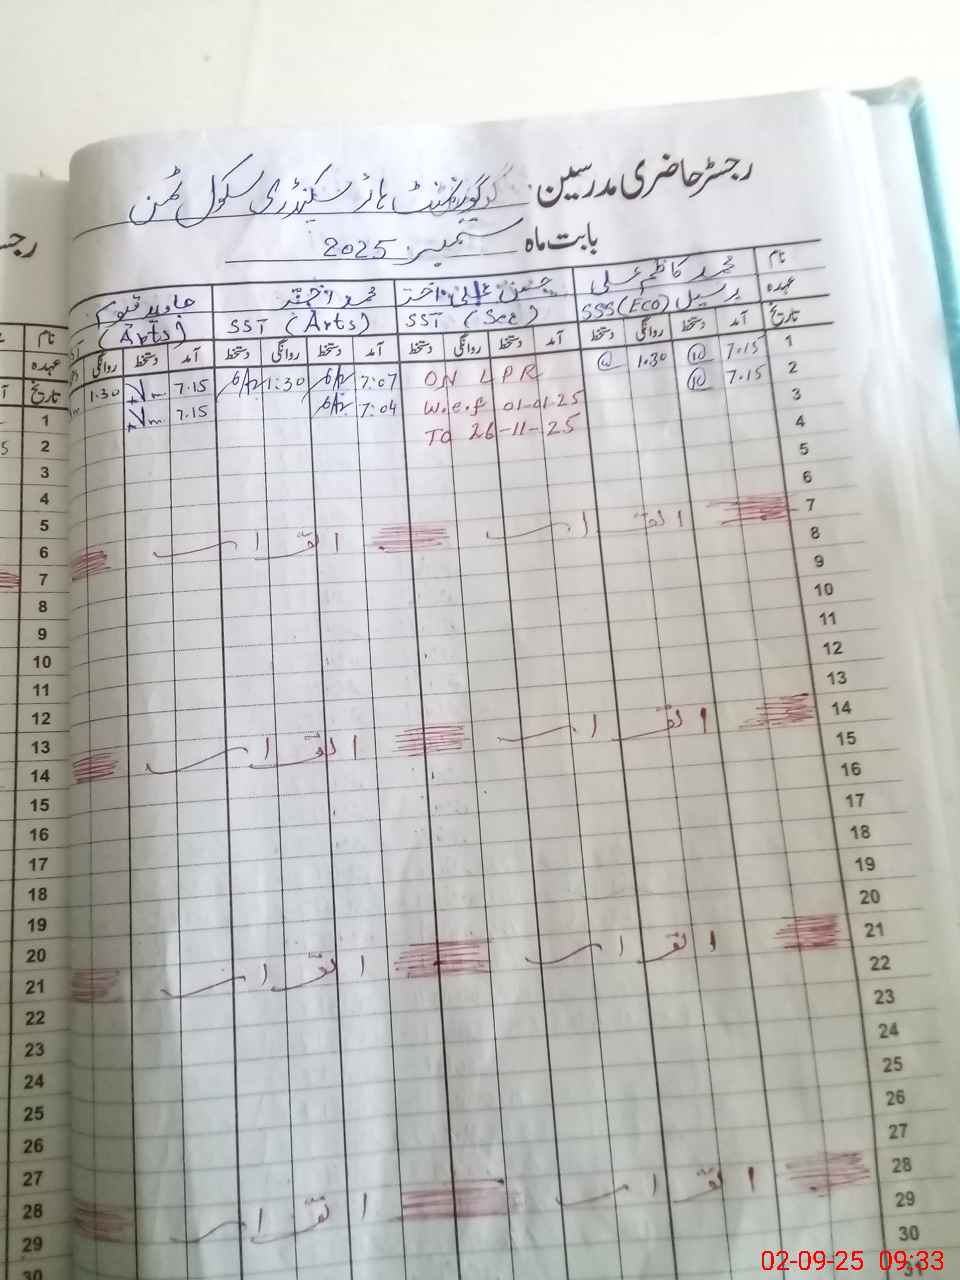 رجسٹر حاضری مدرسین گورنمنٹ ہائر سیکنڈری سکول ٹمن
بابت ماہ ستمبر 2025
نام محمد کاظم علی حسن علی اختر محمد اختر جاوید
عہدہ پرنسپل SSS(ECO) SST (Sce) SST (Arts) SST (Arts)
تاریخ آمد دستخط روانگی دستخط آمد دستخط روانگی دستخط آمد دستخط روانگی دستخط آمد دستخط روانگی
1 7.15 1.30 ON LPR 7:07 1:30 7.15 1.30
2 7.15 w.e.f 01-01-25 7:04 7.15
3 TO 26-11-25
4
5
6
7 اتوار اتوار
8
9
10
11
12
13
14 اتوار اتوار
15
16
17
18
19
20
21 اتوار اتوار
22
23
24
25
26
27
28 اتوار اتوار
29
30
31
رجسٹر
نام
عہدہ
تاریخ
1
2
3
4
5
6
7
8
9
10
11
12
13
14
15
16
17
18
19
20
21
22
23
24
25
26
27
28
29
30
02-09-25 09:33